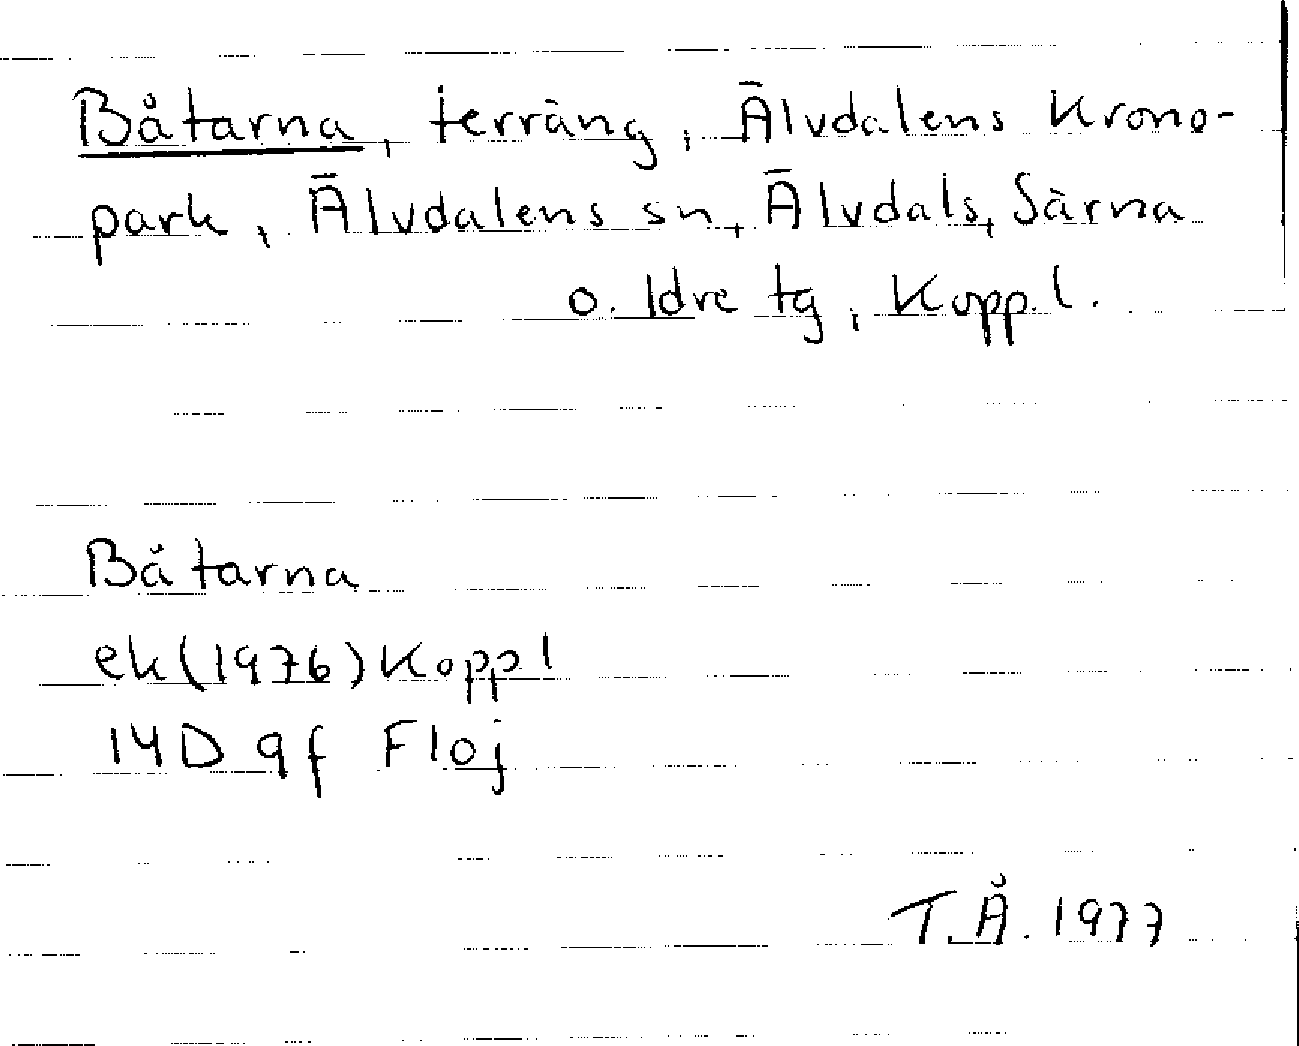 Båtarna, terräng, Älvdalens Krono-
park, Älvdalens sn, Älvdals, Särna
o. Idre tg, Kopp. l.
Båtarna
ek(1976) Kopp l
14D 9f Floj
T.Å. 1977